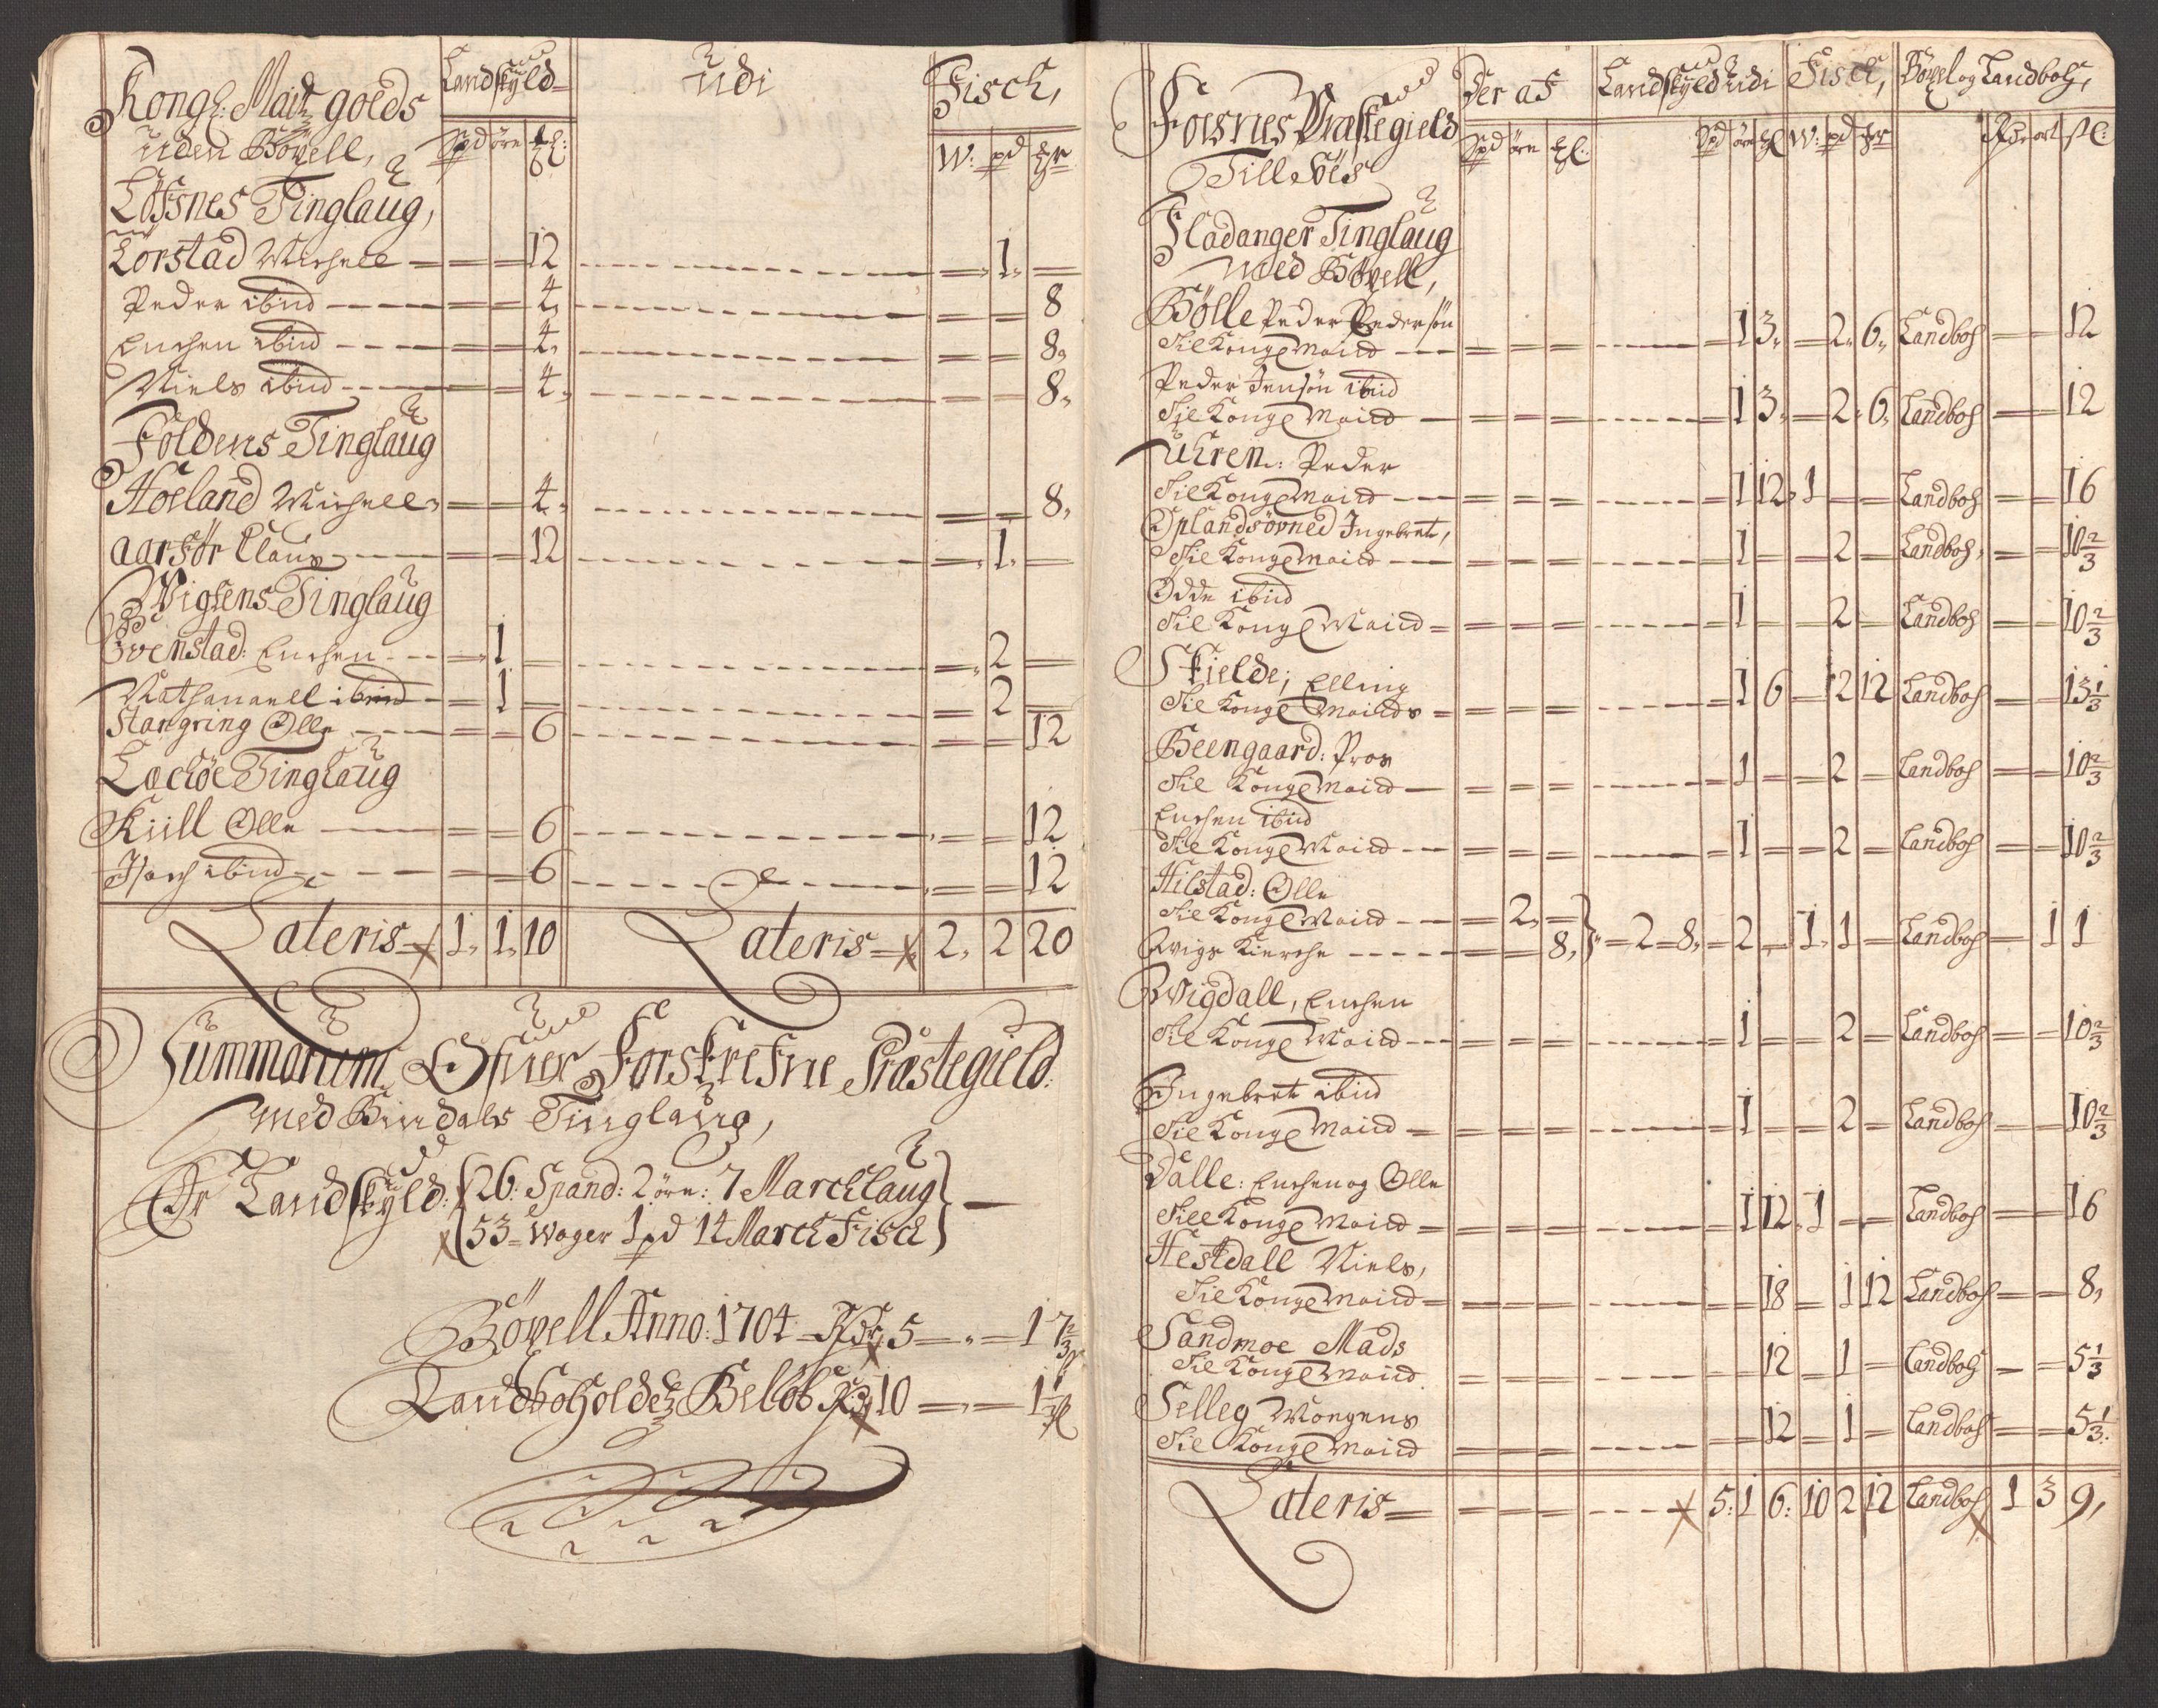 Kongl: Maitz goeds
uden Böxell,
Landskyld
udi
Fisch,
Spd öre
W: pd
Löfsnes Tinglaug,
Lörstad Michell 12 1
Peder ibid 4 8
Enchen ibid 4 8
Niels ibid 4 8
Foldens Tinglaug
Hoeland Michell 4 8
Aarför Claus 12 1
Wigtens Tinglaug
Öfvenstad: Enchen 1 2
Nathanaell ibid 1 2
Stangring Olle 6 12
Lechöe Tinglaug
Kiill Olle 6 12
Isach ibid 6 12
Lateris 1 1 10 Lateris 2 2 20
Summarum Ofver Forskrefne Præstegield:
med Bindals Tinglaug,
Er Landskyld: 26: Spand: 2 öre: 7 March laug
53 Woger 1 pd 14 March Fisch
Böxell Anno: 1704 Rdr 5 1 7 2/3
Landboholdetz Belöb Rdr 10 1 1/3
Foesnes Præstegield
Till Söes
Der af
Landskyld udi
Fisch,
Böxel og Landboh,
Spd öre
Spd öre W: pd
Rdr ort sl:
Fladanger Tinglaug
Med Böxell,
Bölle Peder Pedersøn
Til Kongl Maitd 1 3 2 6 Landboh 12
Peder Jensøn ibid
Til Kongl Maitd 1 3 2 6 Landboh 12
Uhren: Peder
Til Kongl Maitd 1 12 1 Landboh 16
Oplandsövned Ingebret,
Til Kongl Maitd 1 2 Landboh 10 2/3
Odde ibid
Til Kongl Maitd 1 2 Landboh 10 2/3
Skielde; Elling
Til Kongl Maitds 1 6 2 12 Landboh 13 1/3
Beengaard: Pros
Til Kongl Maitd 1 2 Landboh 10 2/3
Enchen ibid
Til Kongl Maitd 1 2 Landboh 10 2/3
Hilstad: Olle
Til Kongl Maitd 2
Hvigs Kierche 8 2 8 2 1 1 Landboh 1 1
Wigdall, Enchen
Til Kongl Maitd 1 2 Landboh 10 2/3
Ingebret ibid
Til Kongl Maitd 1 2 Landboh 10 2/3
Dalle: Enchen og Olle
Till Kongl Maitd 1 12 1 Landboh 16
Hestdall Niels,
Til Kongl Maitd 18 1 12 Landboh 8
Sandmoe Mads
Til Kongl Maitd 12 1 Landboh 5 1/3
Selleg Mogens
Til Kongl Maitd 12 1 Landboh 5 1/3
Lateris 5: 1 6: 10 2 12 Landboh 1 3 9,